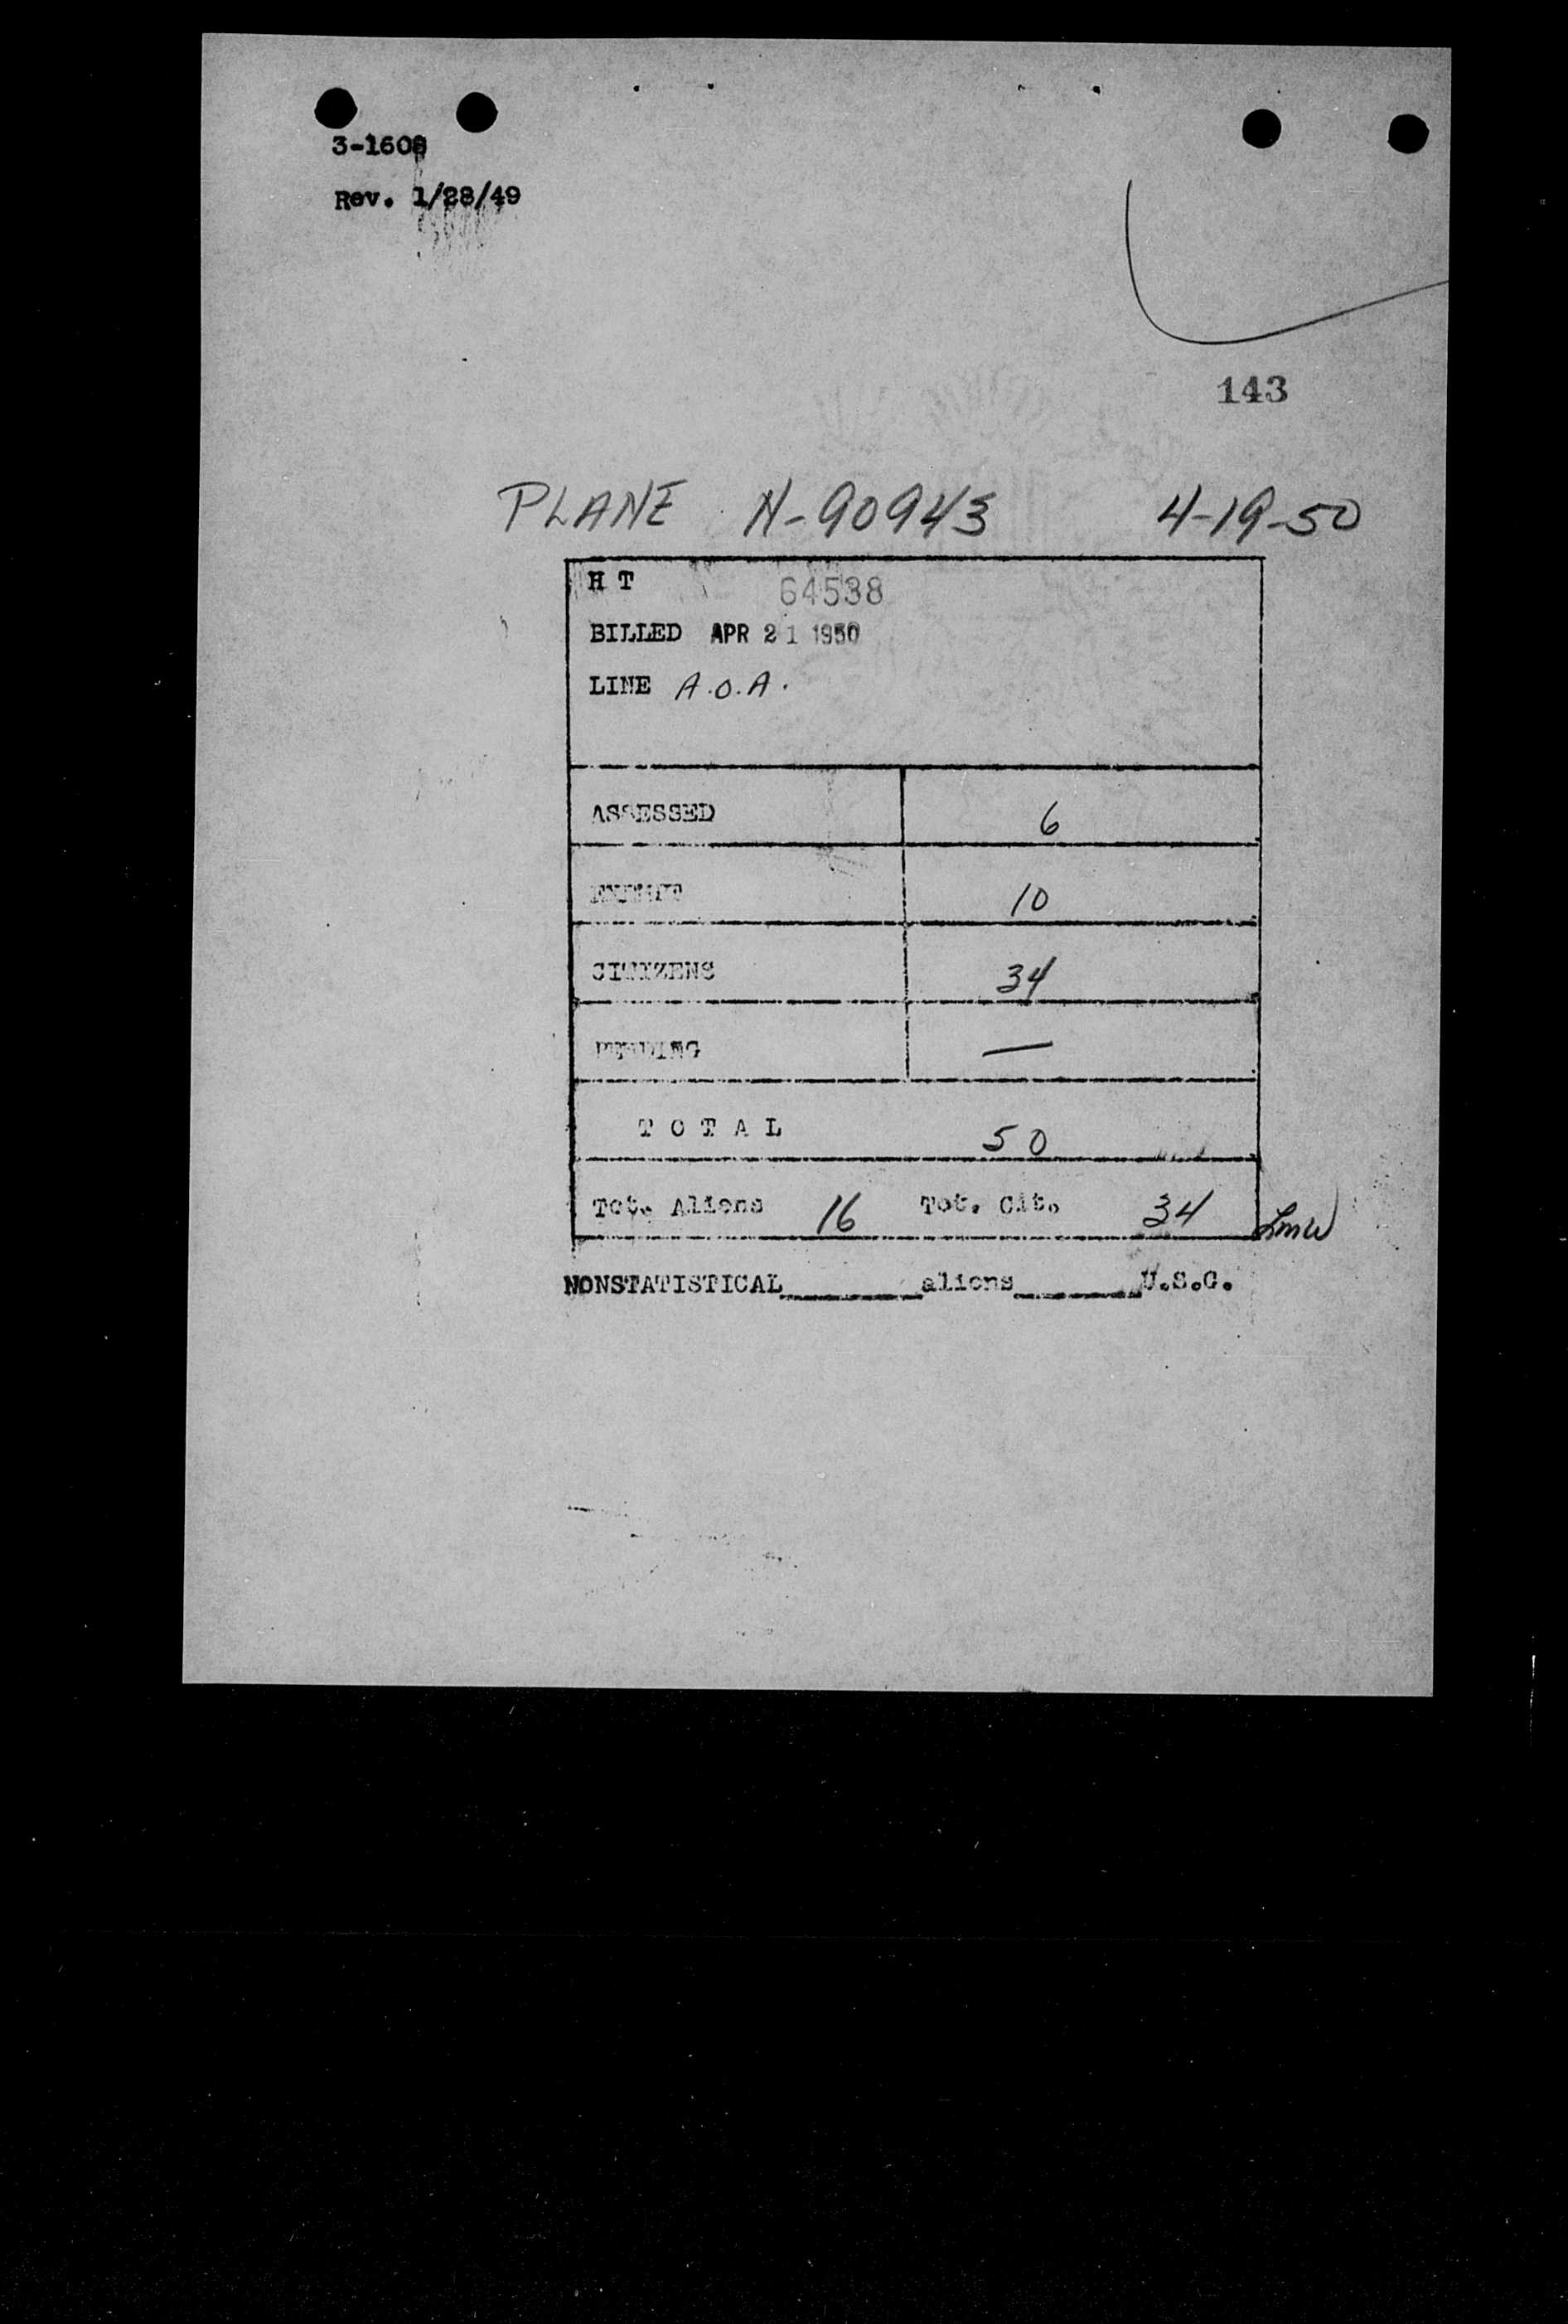 3-1608
Rev. 1/28/49
143
PLANE N-90943 4-19-50
H T 64538
BILLED APR 21 1950
LINE A.O.A.
ASSESSED 6
EXEMPT 10
CITIZENS 34
PENDING —
T O T A L 50
Tot. Aliens 16 Tot. Cit. 34 Lmw
NONSTATISTICAL________aliens________U.S.C.